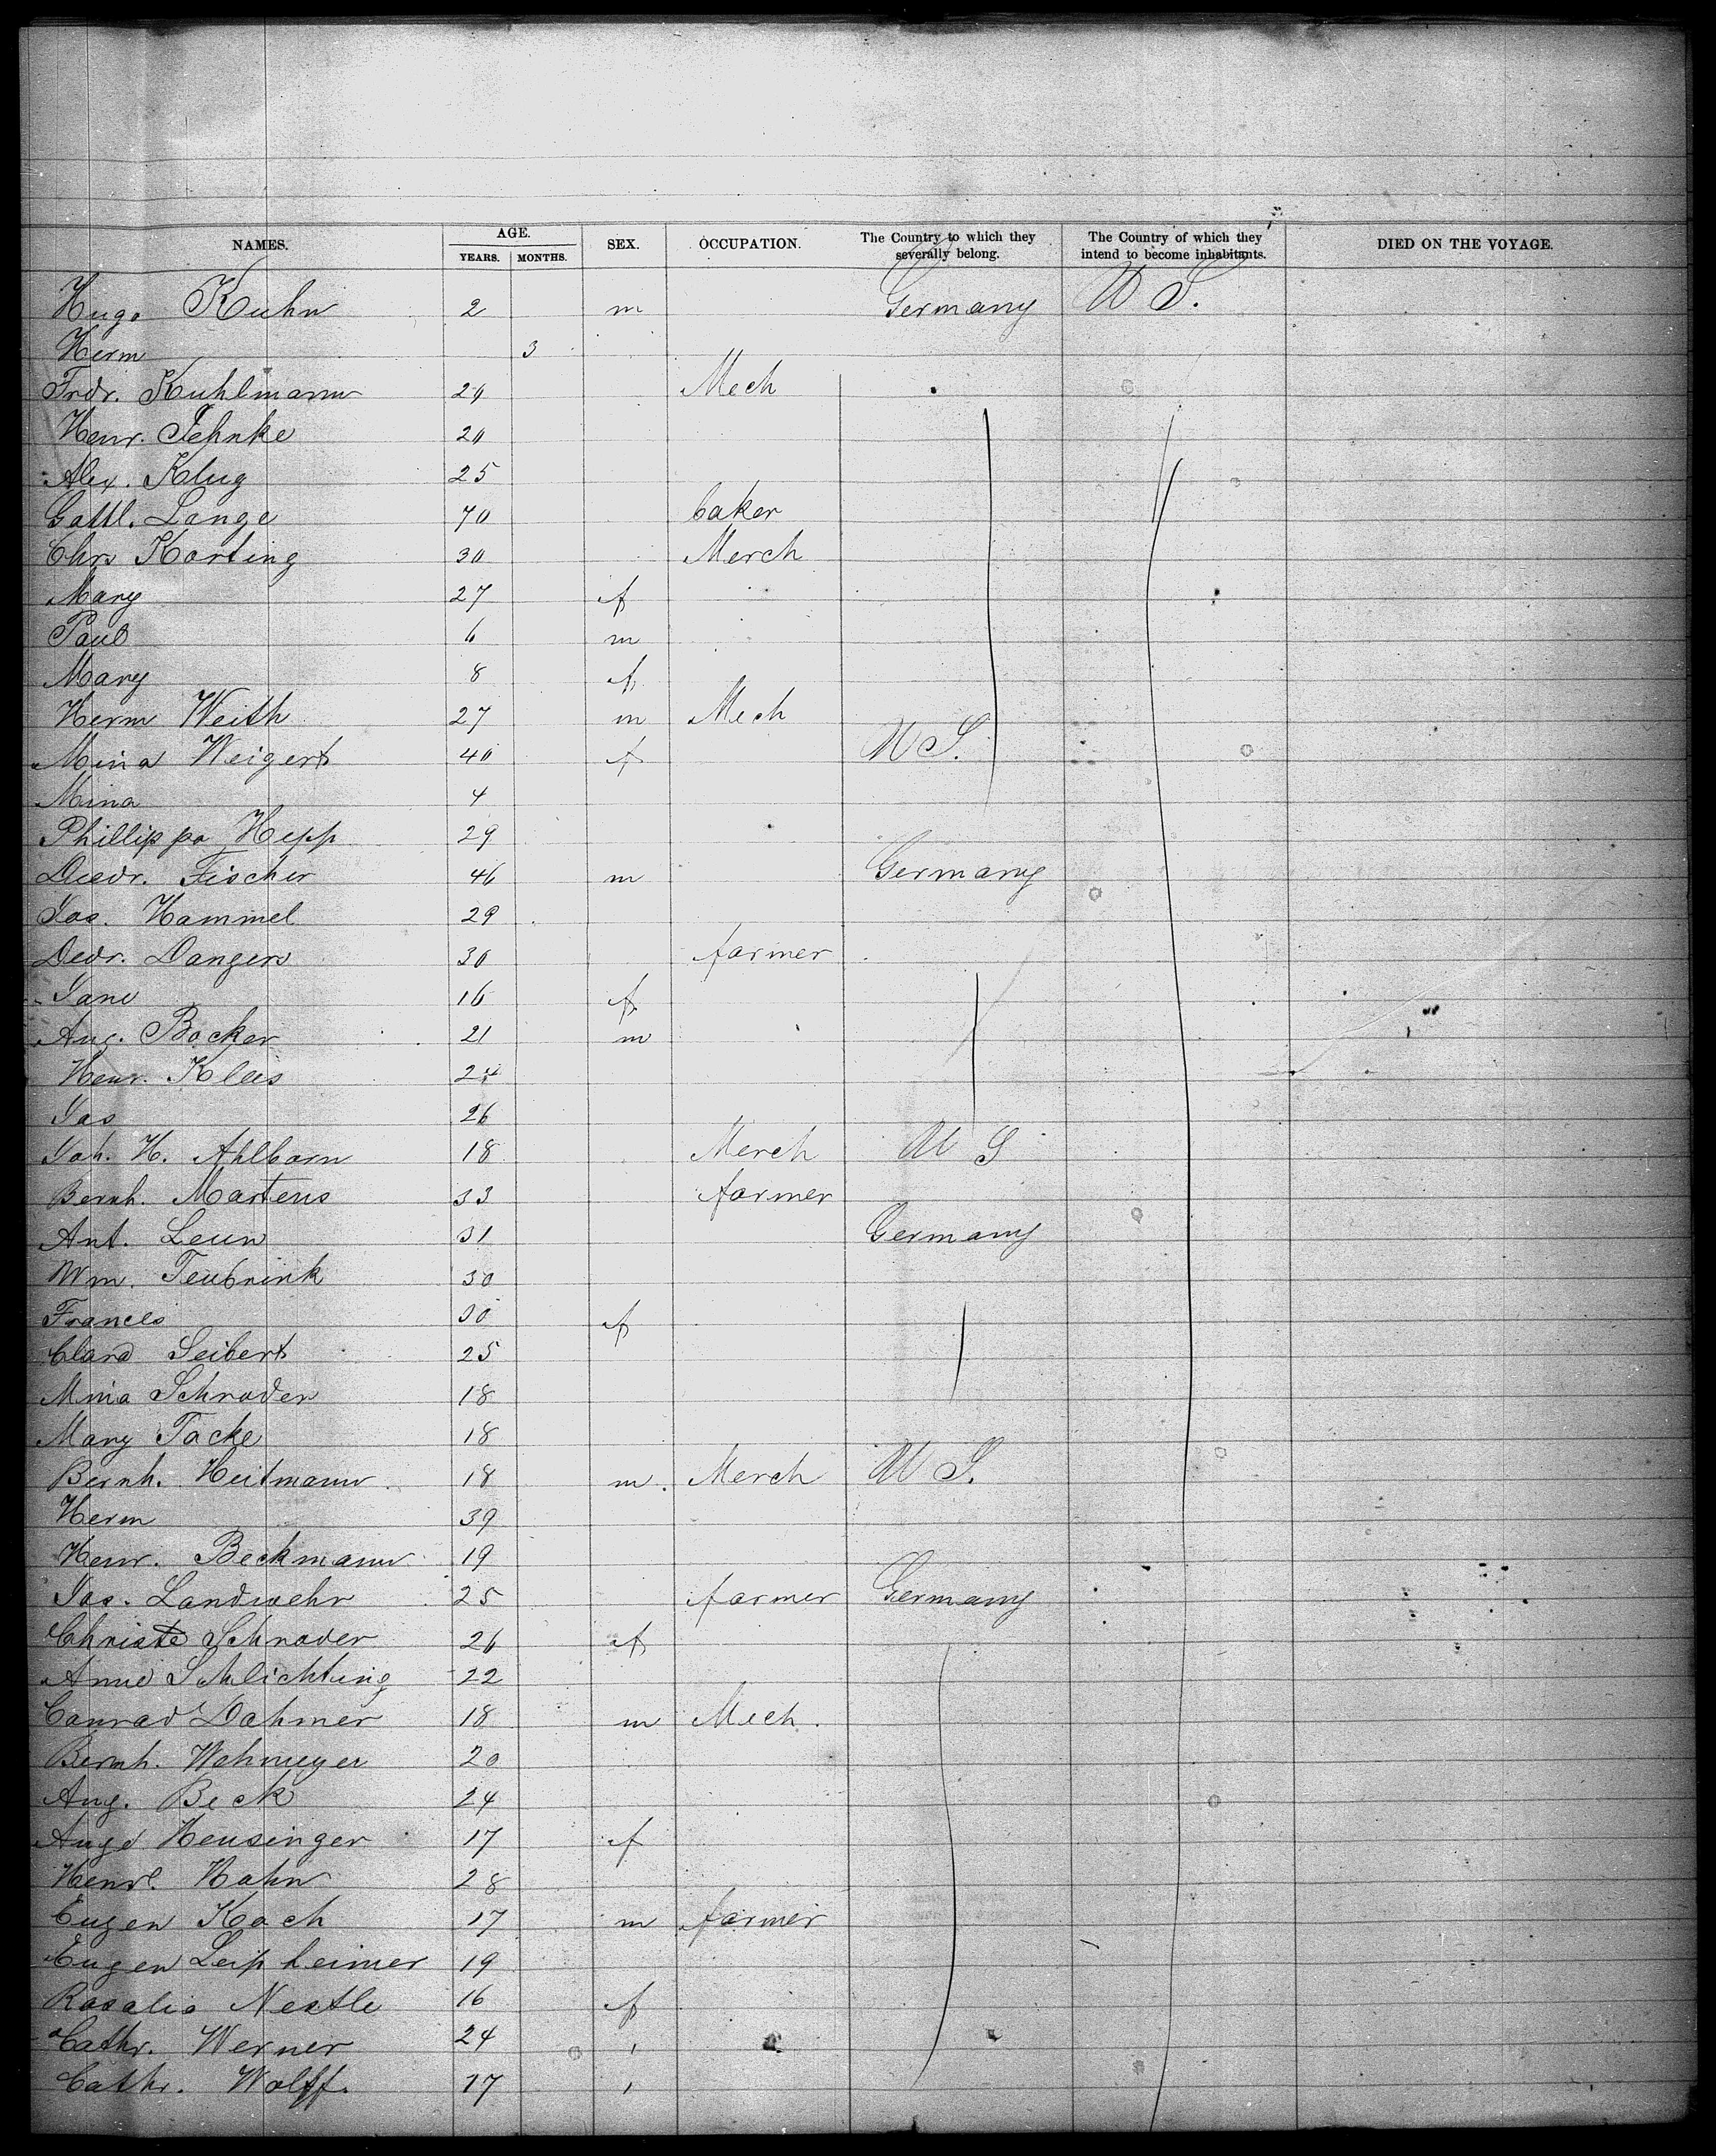 NAMES. AGE. YEARS. MONTHS. SEX. OCCUPATION. The Country to which they severally belong. The Country of which they intend to become inhabitants. DIED ON THE VOYAGE.
Hugo Kuhn 2 m Germany U S.
Herm 3
Frdr. Kuhlmann 24 Mech
Henr. 20
Alex. Klug 25
Gottl. Lange 70 baker
Chrs Korting 30 Merch
Mary 27 f
Paul 6 m
Mary 8 f
Herm Weith 27 m Mech
Mina Weigert 40 f U S.
Mina 4
Phillippa Hepp 29
Diedr. Fischer 46 m Germany
Jos. Hammel 29
Dedr. Dangers 30 farmer
Jane 16 f
Aug. Bocker 21 m
Henr. Kleis 24
Jos 26
Joh. H. Ahlborn 18 Merch U S
Bernh. Martens 33 farmer
Ant. Leun 31 Germany
Wm. Teubrink 30
Francis 30 f
Clara Seibert 25
Mina Schroder 18
Mary Tacke 18
Bernh. Heitmann 18 m. Merch U S.
Herm 39
Henr. Beckmann 19
Jos. Landwehr 25 farmer Germany
Christe Schroder 26 f
Anne Schlichting 22
Conrad Dahmer 18 m Mech.
Bernh. Wehmeyer 20
Aug. Beck 24
Auge Heusinger 17 f
Henrl. Hahn 28
Eugen Koch 17 m farmer
Eugen Leipheimer 19
Rosalia Nestle 16 f
Cathr. Werner 24 "
Cathr. Wolff. 17 "